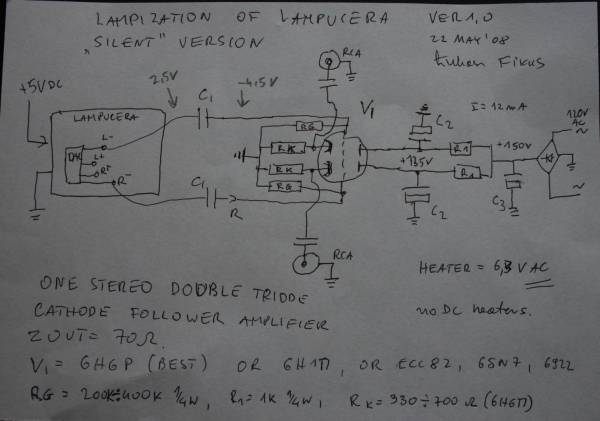 LAMPIZATION OF LAMPUCERA VER 1,0
„SILENT" VERSION 22 MAY '08
Łukasz Fikus
RCA
+5V DC
2,5V
-4,5V
C1
V1
I = 12mA
120V AC
LAMPUCERA
C2
RG
DAC
L-
L+
R+
R-
RK
R1
+150V
+135V
RK
R1
RG
C1
R
C2
C3
RCA
HEATER = 6,3 V AC
ONE STEREO DOUBLE TRIODE
CATHODE FOLLOWER AMPLIFIER
no DC heaters.
ZOUT = 70Ω.
V1 = 6H6P (BEST) OR 6H1П, OR ECC82, 6SN7, 6922
RG = 200K÷400K ¼W, R1 = 1K ¼W, RK = 330÷700 Ω (6H6П)